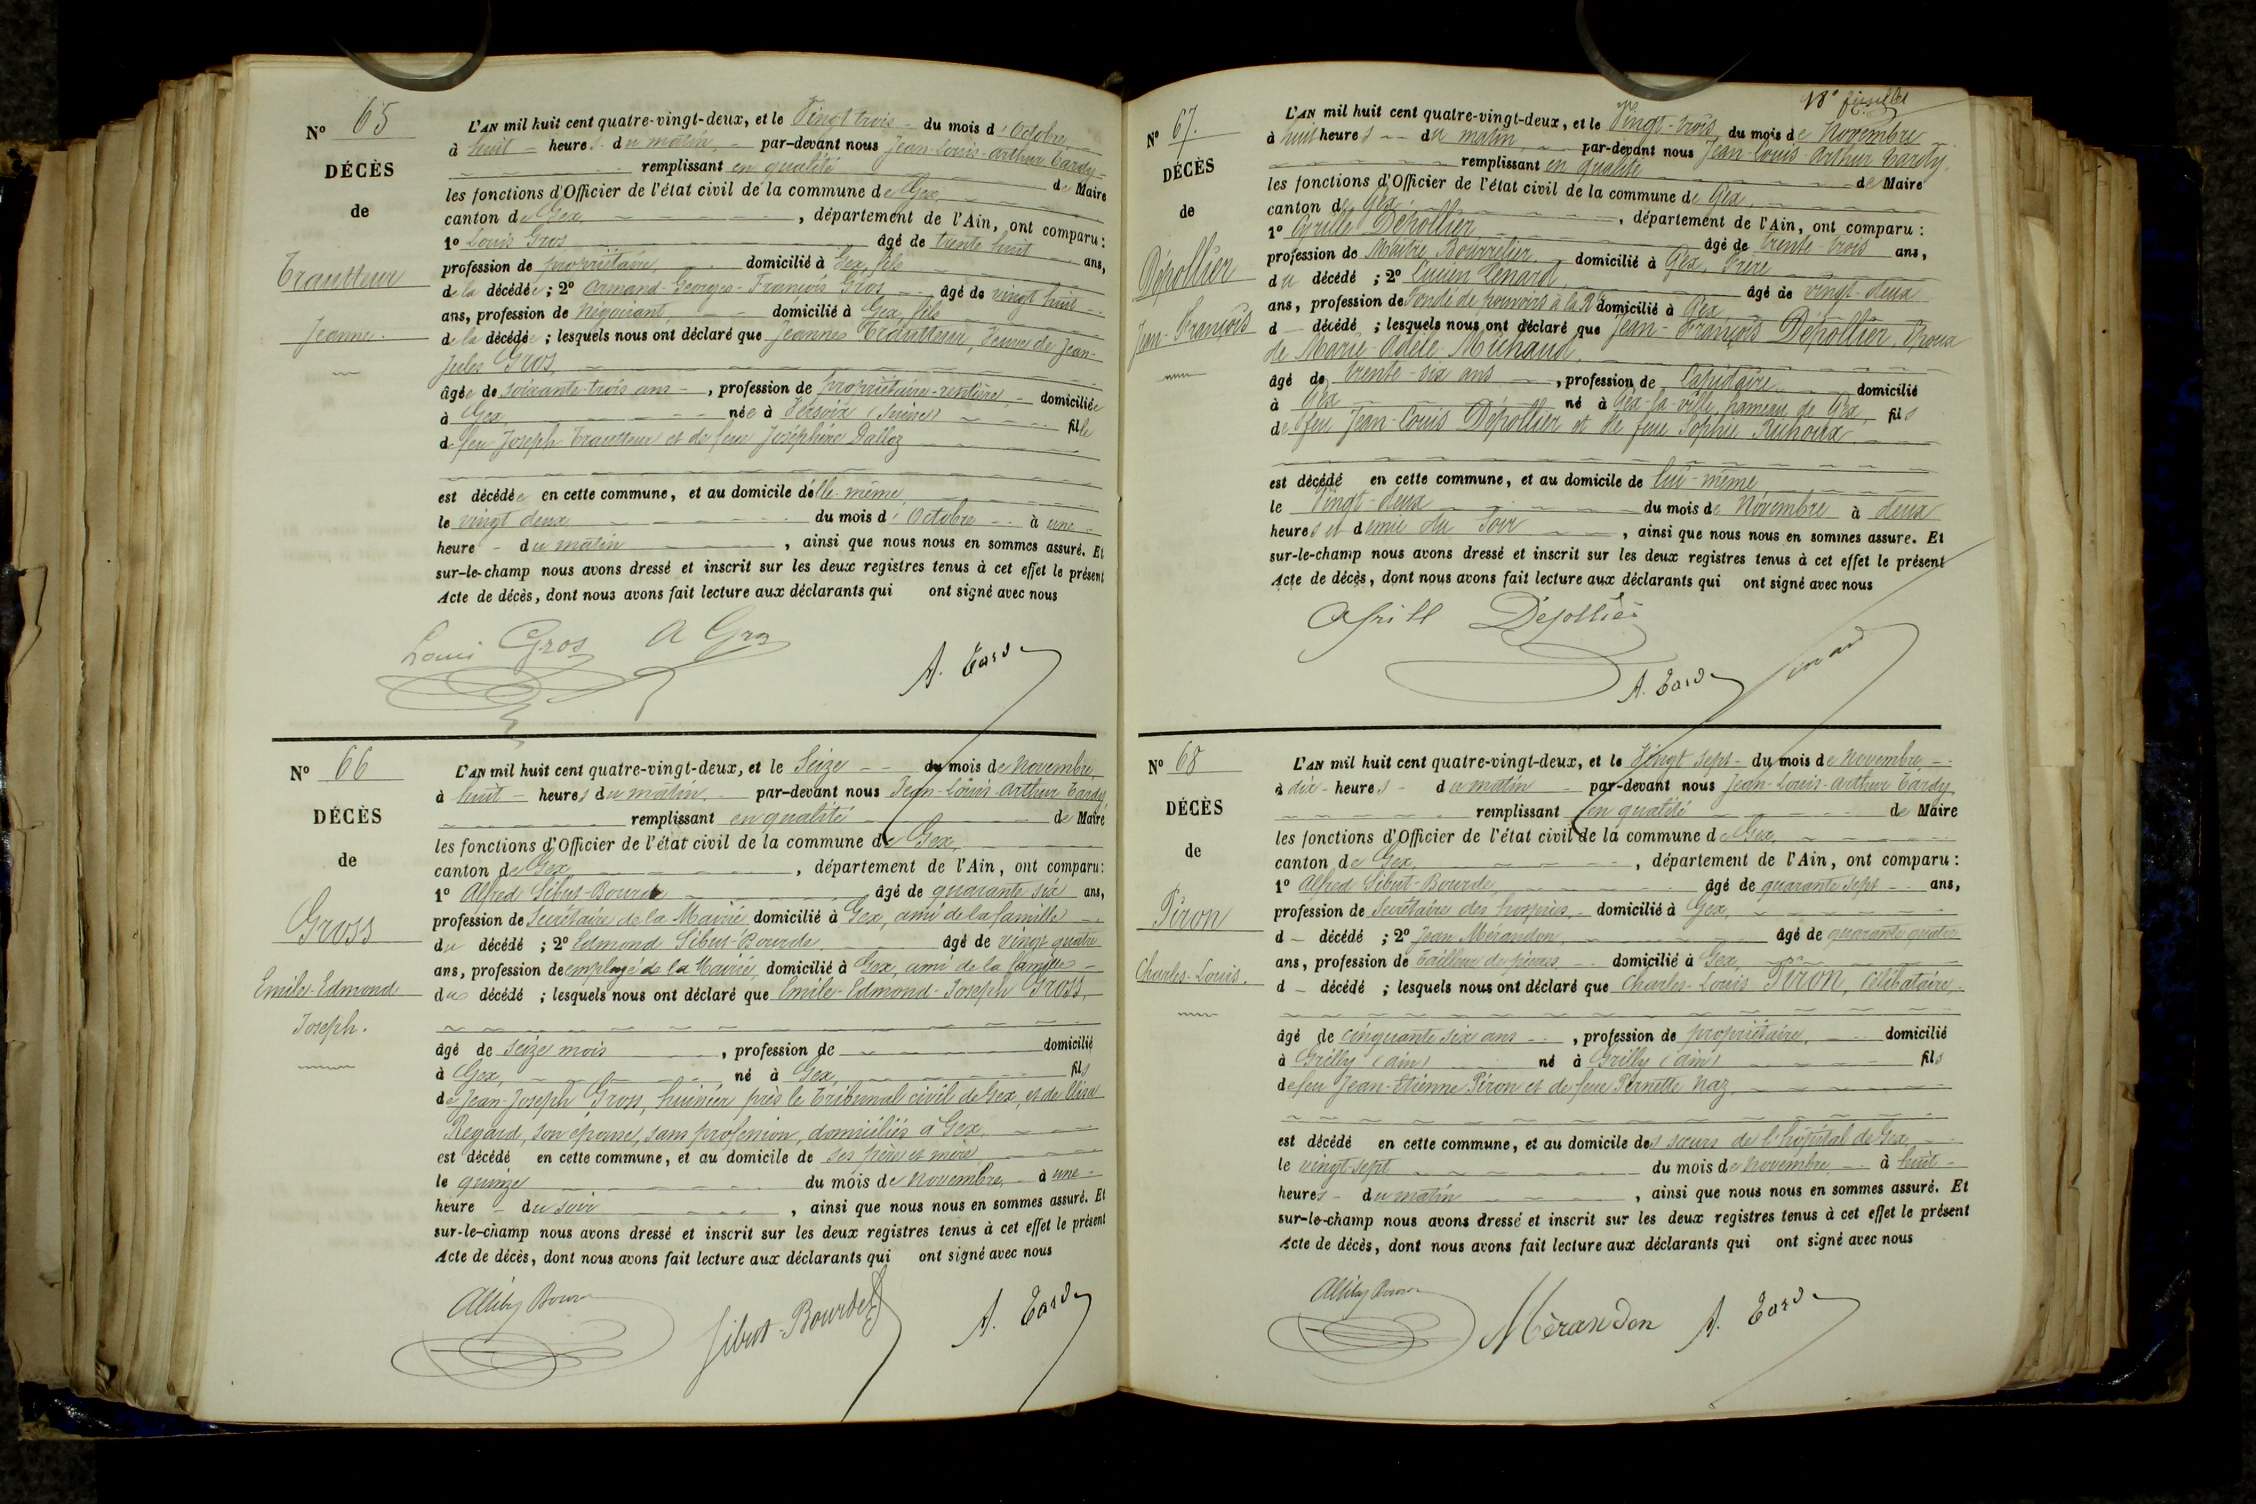 Nº 65
DÉCÈS
de
Trautteur
Jeanne.
L'AN mil huit cent quatre-vingt-deux, et le Vingt trois du mois d'Octobre,
à huit heures du matin, par-devant nous Jean-Louis-Arthur Tardy
remplissant en qualité de Maire
les fonctions d'Officier de l'état civil de la commune de Gex,
canton de Gex, département de l'Ain, ont comparu:
1º Louis Gros âgé de trente huit ans,
profession de propriétaire, domicilié à Gex, fils
de la décédée; 2º Armand-Georges-François Gros âgé de vingt huit
ans, profession de Négociant, domicilié à Gex, fils
de la décédée; lesquels nous ont déclaré que Jeanne Trautteur, Veuve de Jean-
Jules Gros,
âgée de soixante-trois ans, profession de propriétaire-rentière, domiciliée
à Gex, née à Versoix (Suisse) fille
de feu Joseph Trautteur et de feue Joséphine Dalloz
est décédée en cette commune, et au domicile d'elle-même
le vingt deux du mois d'Octobre à une
heure du matin, ainsi que nous nous en sommes assuré. Et
sur-le-champ nous avons dressé et inscrit sur les deux registres tenus à cet effet le présent
Acte de décès, dont nous avons fait lecture aux déclarants qui ont signé avec nous
Louis Gros A Gros
A. Tardy
Nº 66
DÉCÈS
de
Gross
Emile-Edmond
Joseph.
L'AN mil huit cent quatre-vingt-deux, et le Seize du mois de Novembre,
à huit heures du matin, par-devant nous Jean-Louis-Arthur Tardy
remplissant en qualité de Maire
les fonctions d'Officier de l'état civil de la commune de Gex,
canton de Gex, département de l'Ain, ont comparu:
1º Alfred Sibut-Bourde âgé de quarante six ans,
profession de Secrétaire de la Mairie domicilié à Gex, ami de la famille
du décédé; 2º Edmond Sibut-Bourde, âgé de vingt quatre
ans, profession de employé de la Mairie, domicilié à Gex, ami de la famille
du décédé; lesquels nous ont déclaré que Emile-Edmond-Joseph Gross,
âgé de seize mois, profession de domicilié
à Gex, né à Gex, fils
de Jean-Joseph Gross, huissier près le Tribunal civil de Gex, et de Elisa
Regard, son épouse, sans profession, domiciliés à Gex,
est décédé en cette commune, et au domicile de ses père et mère
le quinze du mois de Novembre, à une
heure du soir, ainsi que nous nous en sommes assuré. Et
sur-le-champ nous avons dressé et inscrit sur les deux registres tenus à cet effet le présent
Acte de décès, dont nous avons fait lecture aux déclarants qui ont signé avec nous
Sibut-Bourde A. Tardy
Nº 67.
DÉCÈS
de
Dépollier
Jean-François
L'AN mil huit cent quatre-vingt-deux, et le Vingt-trois du mois de Novembre
à huit heures du matin, par-devant nous Jean-Louis-Arthur Tardy,
remplissant en qualité de Maire
les fonctions d'Officier de l'état civil de la commune de Gex,
canton de Gex, département de l'Ain, ont comparu:
1º Cyrille Dépollier âgé de trente-trois ans,
profession de Maître Bourrelier domicilié à Gex, Frère
du décédé; 2º Lucien Lenard, âgé de vingt-deux
ans, profession de Fondé de pouvoirs à la Rte domicilié à Gex,
d décédé; lesquels nous ont déclaré que Jean-François Dépollier, Epoux
de Marie-Adèle Michaud,
âgé de trente-six ans, profession de Lapidaire, domicilié
à Gex né à Gex-la-ville, hameau de Gex, fils
de feu Jean-Louis Dépollier et de feue Sophie Ruhoux
est décédé en cette commune, et au domicile de lui-même
le Vingt-deux du mois de Novembre à deux
heures et demie du Soir, ainsi que nous nous en sommes assuré. Et
sur-le-champ nous avons dressé et inscrit sur les deux registres tenus à cet effet le présent
Acte de décès, dont nous avons fait lecture aux déclarants qui ont signé avec nous
Dépollier
A. Tardy
Nº 68
DÉCÈS
de
Piron
Charles-Louis.
L'AN mil huit cent quatre-vingt-deux, et le Vingt sept du mois de Novembre
à dix heures du matin par-devant nous Jean-Louis-Arthur Tardy,
remplissant en qualité de Maire
les fonctions d'Officier de l'état civil de la commune de Gex,
canton de Gex, département de l'Ain, ont comparu:
1º Alfred Sibut-Bourde, âgé de quarante sept ans,
profession de Secrétaire des hospices, domicilié à Gex,
d décédé; 2º Jean Mérandon, âgé de quarante quatre
ans, profession de tailleur de pierres, domicilié à Gex,
d décédé; lesquels nous ont déclaré que Charles-Louis Piron, Célibataire,
âgé de cinquante six ans, profession de propriétaire, domicilié
à Grilly (Ain) né à Grilly (Ain) fils
de feu Jean-Etienne Piron et de feue Pernette Naz,
est décédé en cette commune, et au domicile des sœurs de l'hôpital de Gex,
le vingt-sept du mois de Novembre à huit
heures du matin, ainsi que nous nous en sommes assuré. Et
sur-le-champ nous avons dressé et inscrit sur les deux registres tenus à cet effet le présent
Acte de décès, dont nous avons fait lecture aux déclarants qui ont signé avec nous
Mérandon A. Tardy